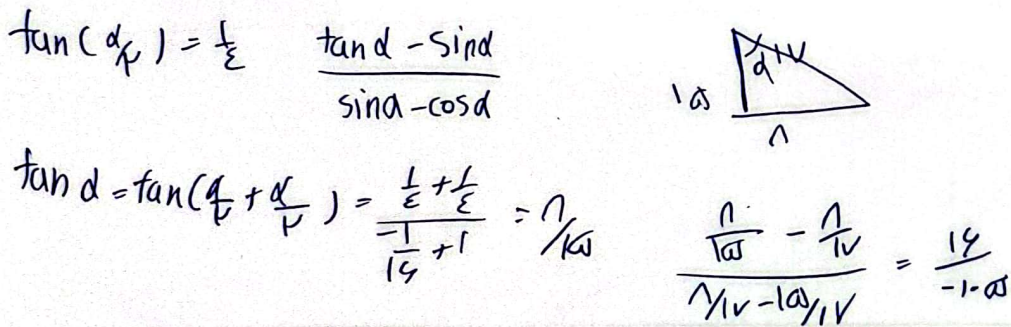 tan(α/۲) = ۱/۴    (tanα - sinα)/(sinα - cosα)
۱۵ α ۱۷ ۸
tanα = tan(α/۲ + α/۲) = (۱/۴ + ۱/۴)/(-۱/۱۶ + ۱) = ۸/۱۵
(۸/۱۵ - ۸/۱۷)/(۸/۱۷ - ۱۵/۱۷) = ۱۶/-۱۰۵